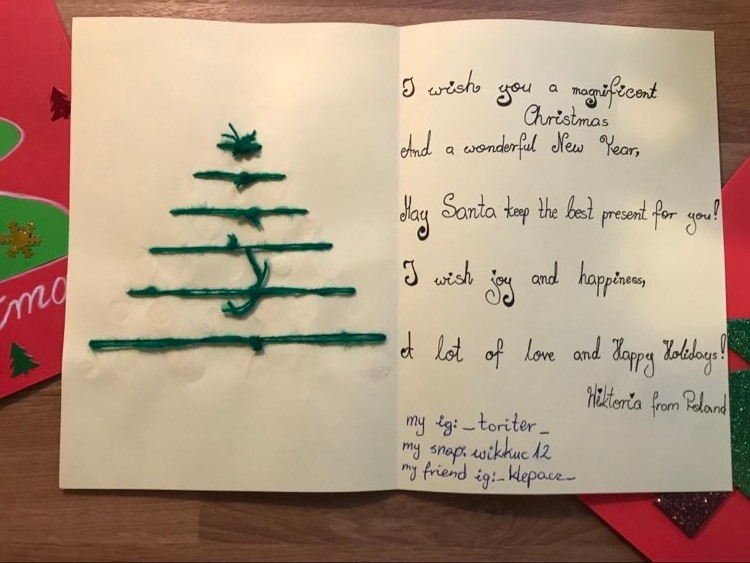 I wish you a magnificent
Christmas
And a wonderful New Year,
May Santa keep the best present for you!
I wish joy and happiness,
A lot of love and Happy Holidays!
Wiktoria from Poland
my ig: _toriter_
my snap: wikkuc12
my friend ig: _klepacz_